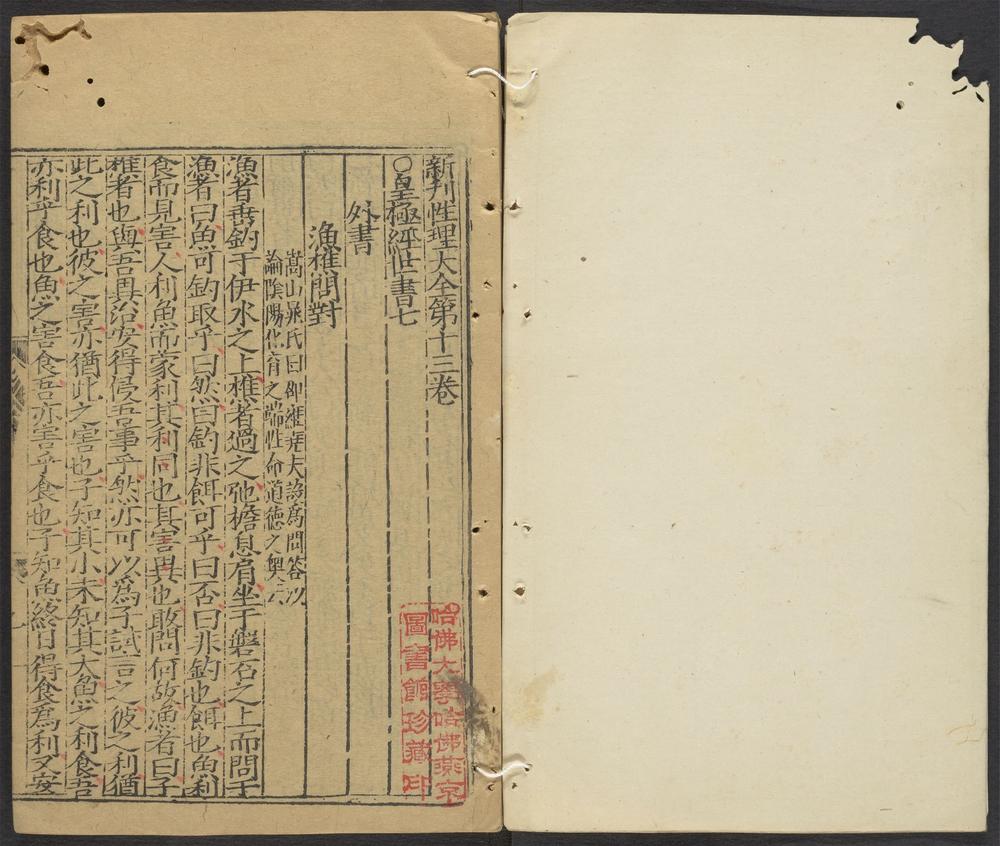 新刊性理大全第十三卷
○皇極經世書七
外書
漁樵問對
嵩山晁氏曰邵雍堯夫設爲問答以
論陰陽化育之端性命道德之奧云
漁者垂釣于伊水之上樵者過之弛擔息肩坐于磐石之上而問于
漁者曰魚可釣取乎曰然曰釣非餌可乎曰否曰非釣也餌也魚利
食而見害人利魚而蒙利其利同也其害異也敢問何故漁者曰子
樵者也與吾異治安得侵吾事乎然亦可以爲子試言之彼之利猶
此之利也彼之害亦猶此之害也子知其小未知其大魚之利食吾
亦利乎食也魚之害食吾亦害乎食也子知魚終日得食爲利又安
哈佛大學哈佛燕京
圖書館珍藏印